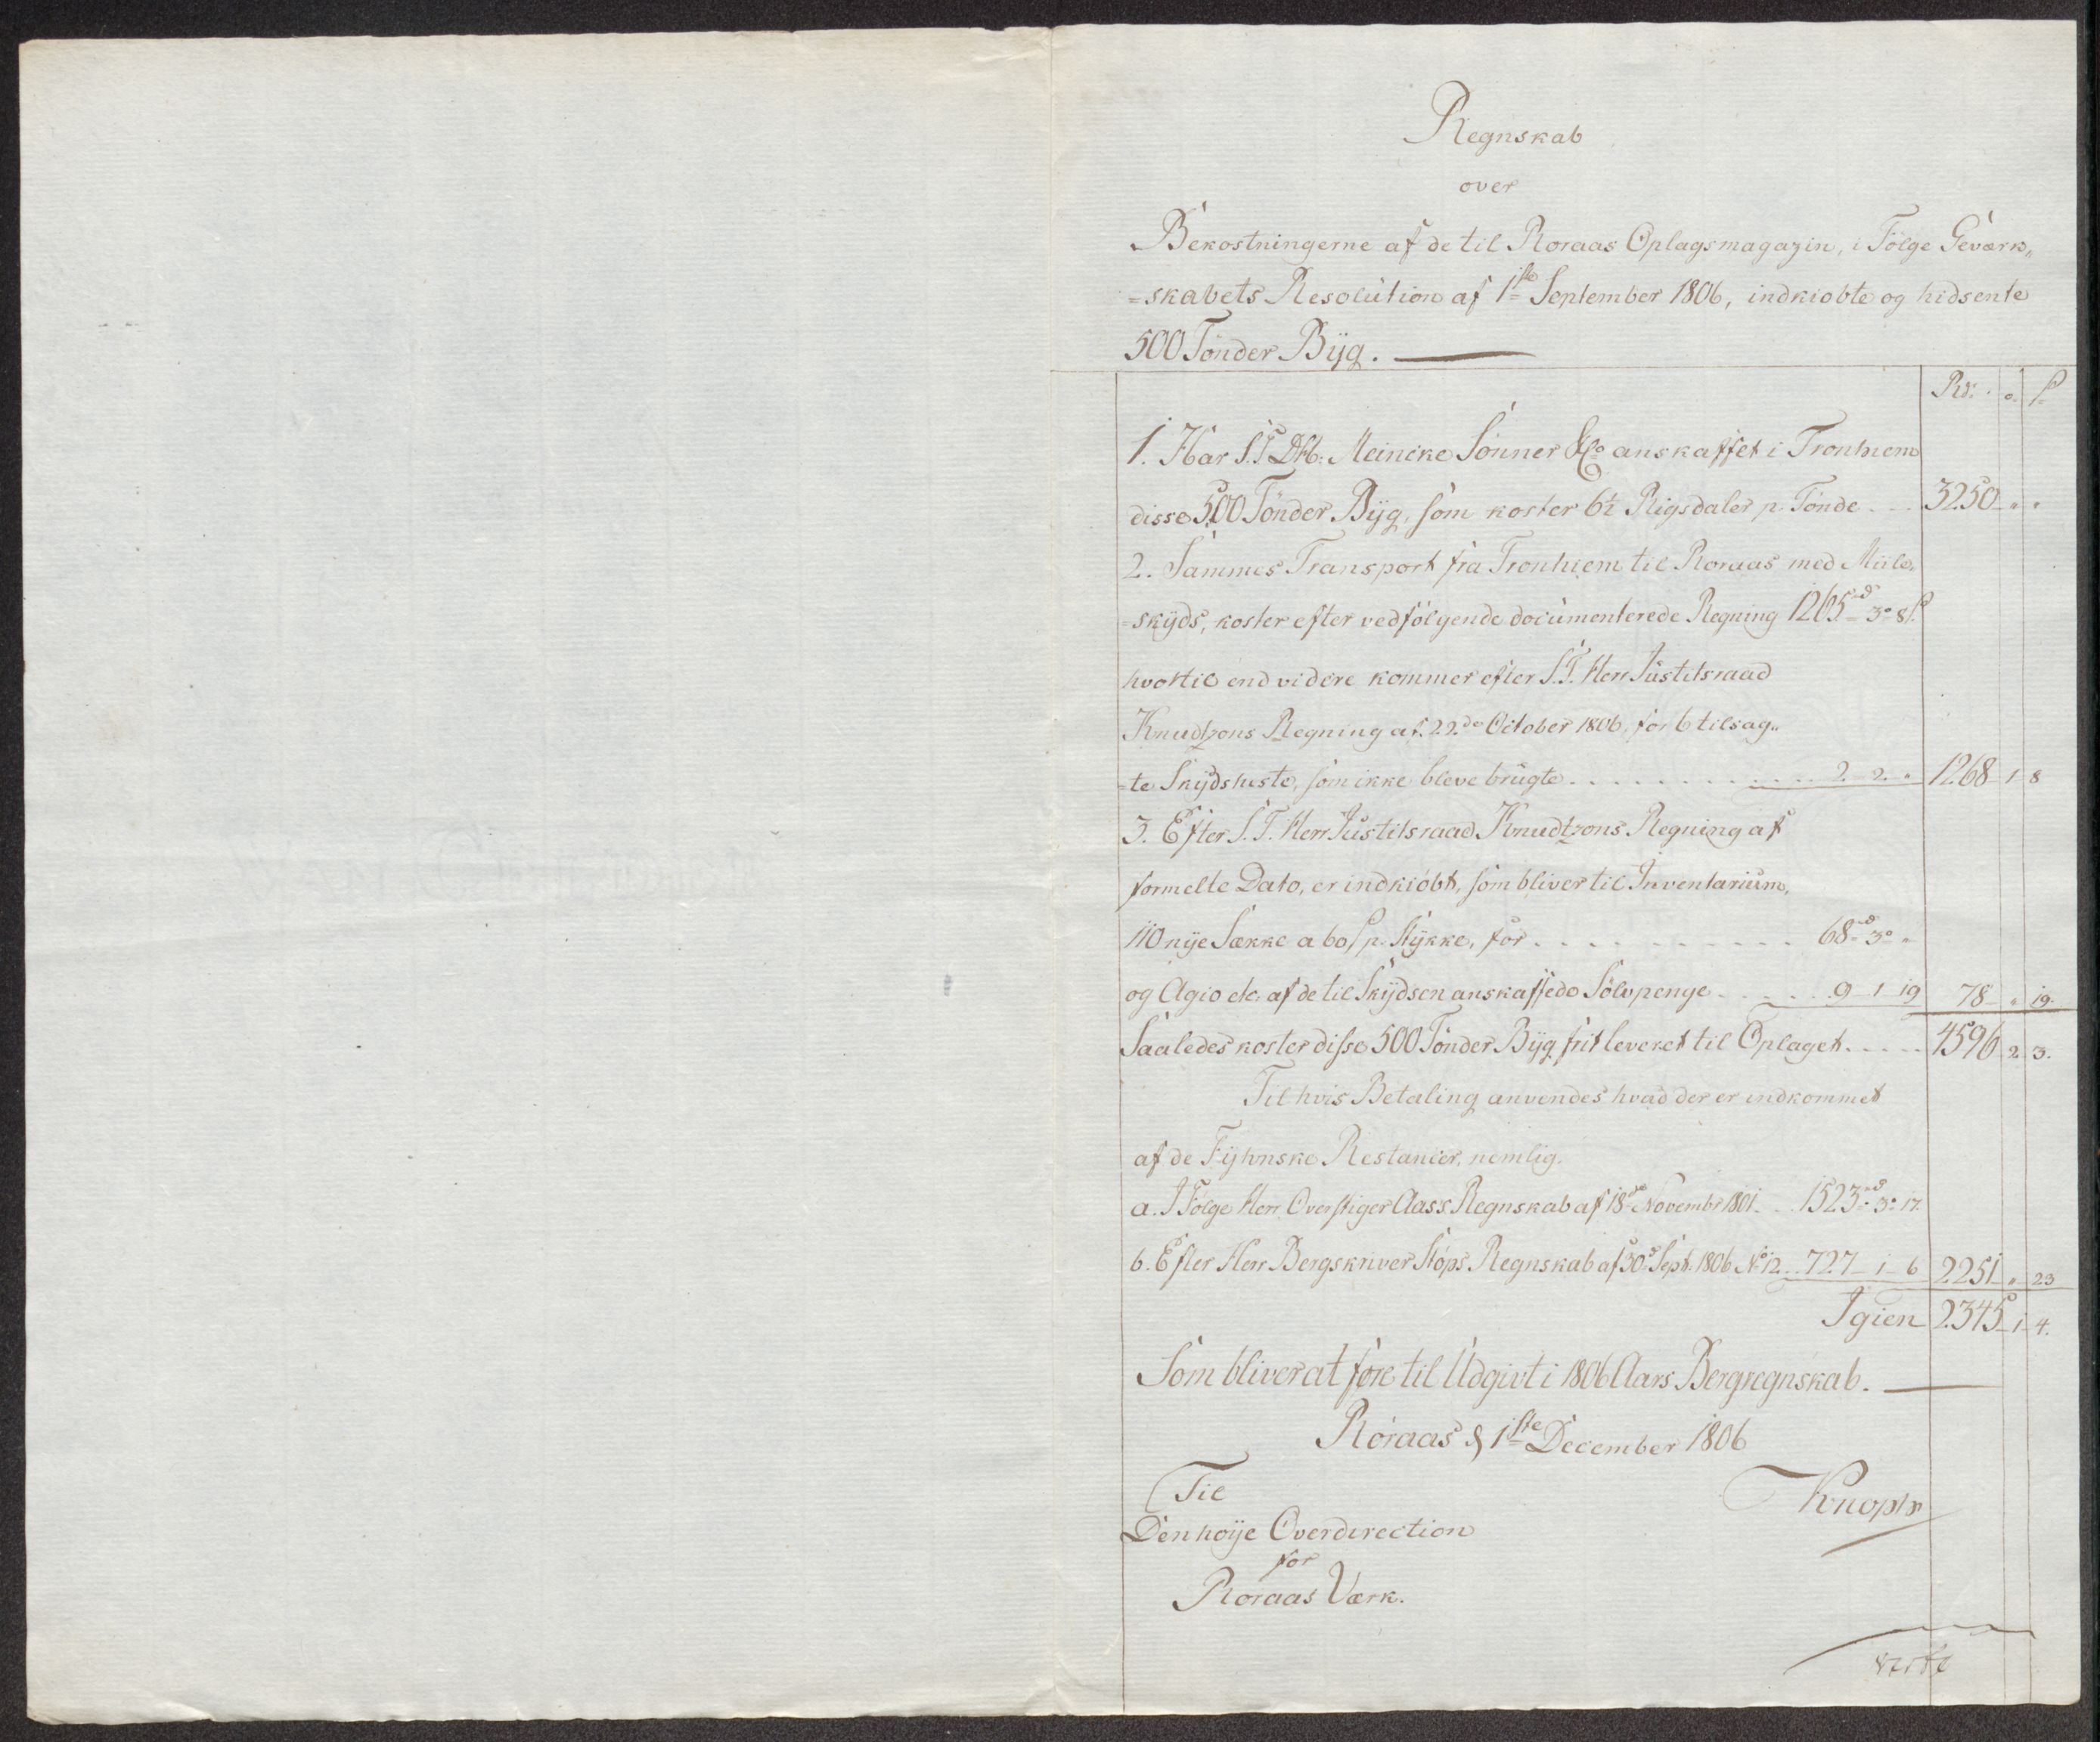 Regnskab
over
Bekostningerne af de til Röraas Oplagsmagazin, i Fölge Geværk„
=skabets Resolution af 1ste September 1806, indkiöbte og hidsente
500 Tönder Byg.
Rd. o. s
1. Har S.T. DHb. Meincke Sönner & Co anskaffet i Tronhiem
disse 500 Tönder Byg, som koster 6½ Rigsdaler p. Tönde . . . 3250 „ „
2. Sammes Transport fra Tronhiem til Röraas med Miile„
=skyds, koster efter vedfölgende documenterede Regning 1265rd 3o 8s
hvortil end videre kommer efter S.T. Herr Justitsraad
Knudtzons Regning af 22de October 1806, for 6 tilsag„
=te Skydsheste, som ikke bleve brugte . . . . . 2 2 „ 1268 1 8
3. Efter S.T. Herr Justitsraad Knudtzons Regning af
formelte Dato, er indkiöbt, som bliver til Inventarium,
110 nye Sække a 60 s p. Stykke, for . . . . . 68rd 3o „
og Agio etc. af de til Skydsen anskaffede Sölvpenge . . . . . 9 1 19 78 „ 19.
Saaledes koster disse 500 Tönder Byg frit leveret til Oplaget . . . . . 4596 2 3.
Til hvis Betaling anvendes hvad der er indkommet
af de Fyhnske Restancer, nemlig.
a. I Fölge Herr Overstiger Aass. Regnskab af 18de Novembr 1801. . . 1523rd 3o 17.
b. Efter Herr Bergskriver Stöps Regnskab af 30d Sept. 1806 No 12 . . 727 1 6 2251 „ 23
Igien 2345 1 4.
Som bliver at före til Udgivt i 1806 Aars Bergregnskab.
Röraas d 1ste December 1806
Til
Knoph
Den höye Overdirection
for
Röraas Værk.
verte